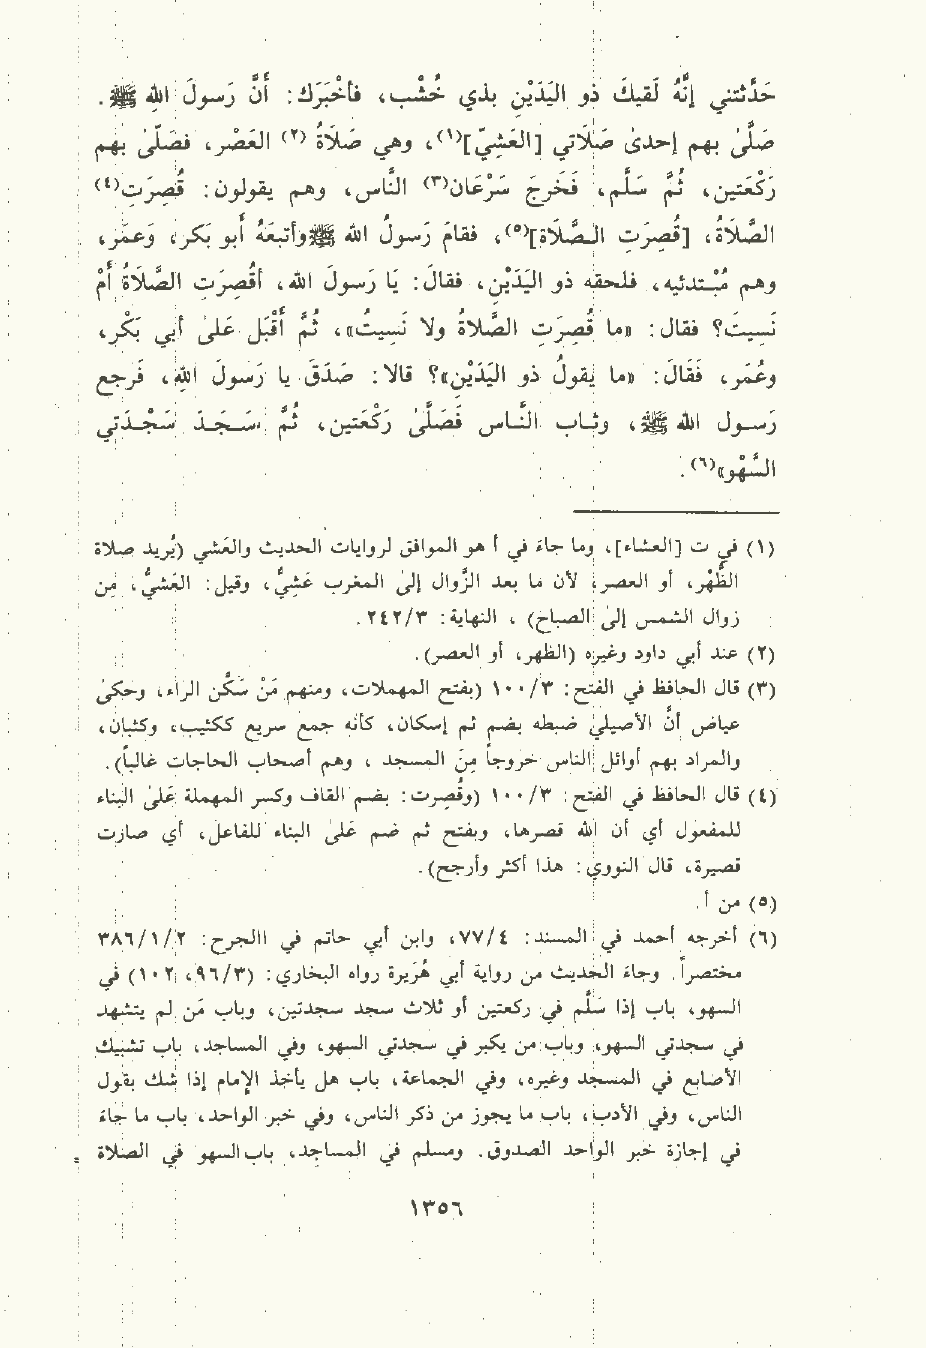 حَدَّثتني إنَّهُ لَقيكَ ذو اليَدَيْنِ بذي خُشْب، فأخْبَرَك: أَنَّ رَسولَ اللهِ ﷺ.
صَلَّىٰ بهم إحدىٰ صَلَاتي [العَشِيّ](١)، وهي صَلَاةُ (٢) العَصْر، فصَلَّىٰ بهم
رَكْعَتين، ثُمَّ سَلَّم، فَخَرجَ سَرْعَان(٣) النَّاس، وهم يقولون: قُصِرَت(٤)
الصَّلَاةُ، [قُصِرَت الصَّلَاة](٥)، فقامَ رَسولُ الله ﷺ وأتبعَهُ أبو بَكر، وَعمَر،
وهم مُبْتدئيه، فلحقه ذو اليَدَيْنِ، فقالَ: يَا رَسولَ الله، أقُصِرَت الصَّلَاةُ أَمْ
نَسِيتَ؟ فقال: «ما قُصِرَتِ الصَّلاةُ ولا نَسِيتُ»، ثُمَّ أَقْبَلَ عَلىٰ أبي بَكْر،
وعُمَر، فَقَالَ: «ما يقولُ ذو اليَدَيْنِ»؟ قالا: صَدَقَ يا رَسولَ اللهِ، فَرجع
رَسول الله ﷺ، وثاب النَّاس فَصَلَّىٰ رَكْعَتين، ثُمَّ سَجَدَ سَجْدَتي
السَّهْو»(٦).
(١) في ت [العشاء]، وما جاءَ في أ هو الموافق لروايات الحديث والعَشي (يُريد صلاة
الظُّهْر، أو العصر، لأن ما بعد الزَّوال إلىٰ المغرب عَشِيٌّ، وقيل: العَشيُّ، مِن
زوال الشمس إلىٰ الصباح) ، النهاية: ٢٤٢/٣.
(٢) عند أبي داود وغيره (الظهر، أو العصر).
(٣) قال الحافظ في الفتح: ١٠٠/٣ (بفتح المهملات، ومنهم مَنْ سَكَّن الراء، وحكىٰ
عياض أنَّ الأصيلي ضبطه بضم ثم إسكان، كأنه جمع سريع ككثيب، وكثبان،
والمراد بهم أوائل الناس خروجاً مِنَ المسجد ، وهم أصحاب الحاجات غالباً).
(٤) قال الحافظ في الفتح : ١٠٠/٣ (وقُصِرت: بضم القاف وكسر المهملة عَلىٰ البناء
للمفعول أي أن الله قصرها، وبفتح ثم ضم عَلىٰ البناء للفاعل، أي صارت
قصيرة، قال النووي: هذا أكثر وأرجح).
(٥) من أ.
(٦) أخرجه أحمد في المسند: ٧٧/٤، وابن أبي حاتم في االجرح: ٣٨٦/١/٢
مختصراً. وجاءَ الحديث من رواية أبي هُرَيرة رواه البخاري: (٩٦/٣، ١٠٢) في
السهو، باب إذا سَلَّم في ركعتين أو ثلاث سجد سجدتين، وباب مَن لم يتشهد
في سجدتي السهو، وباب من يكبر في سجدتي السهو، وفي المساجد، باب تشبيك
الأصابع في المسجد وغيره، وفي الجماعة، باب هل يأخذ الإمام إذا شك بقول
الناس، وفي الأدب، باب ما يجوز من ذكر الناس، وفي خبر الواحد، باب ما جاءَ
في إجازة خبر الواحد الصدوق. ومسلم في المساجد، باب السهو في الصلاة =
١٣٥٦